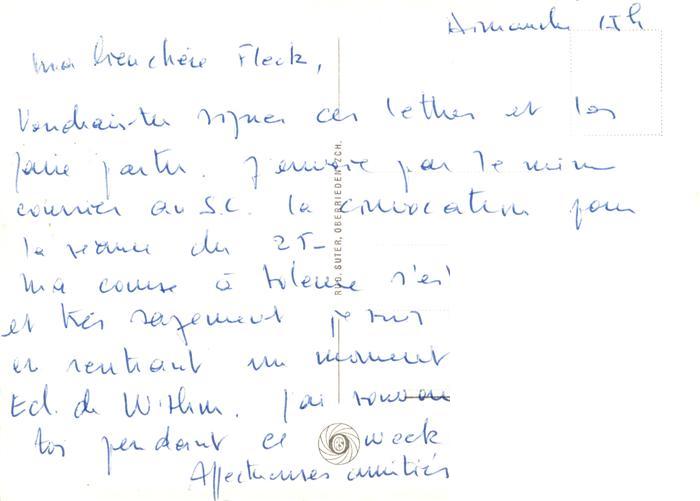 Dimanche 15h
ma bien chère Fleck,
Voudrais-tu signer ces lettres et les
faire partir. J'envoie par le même
courrier au S.C. la convocation pour
la séance du 25-
ma course à
et très sagement je suis
en rentrant un moment
Ed. de W. J'ai
pendant ce week
Affectueuses amitiés
RUD. SUTER, OBERRIEDEN-ZCH.